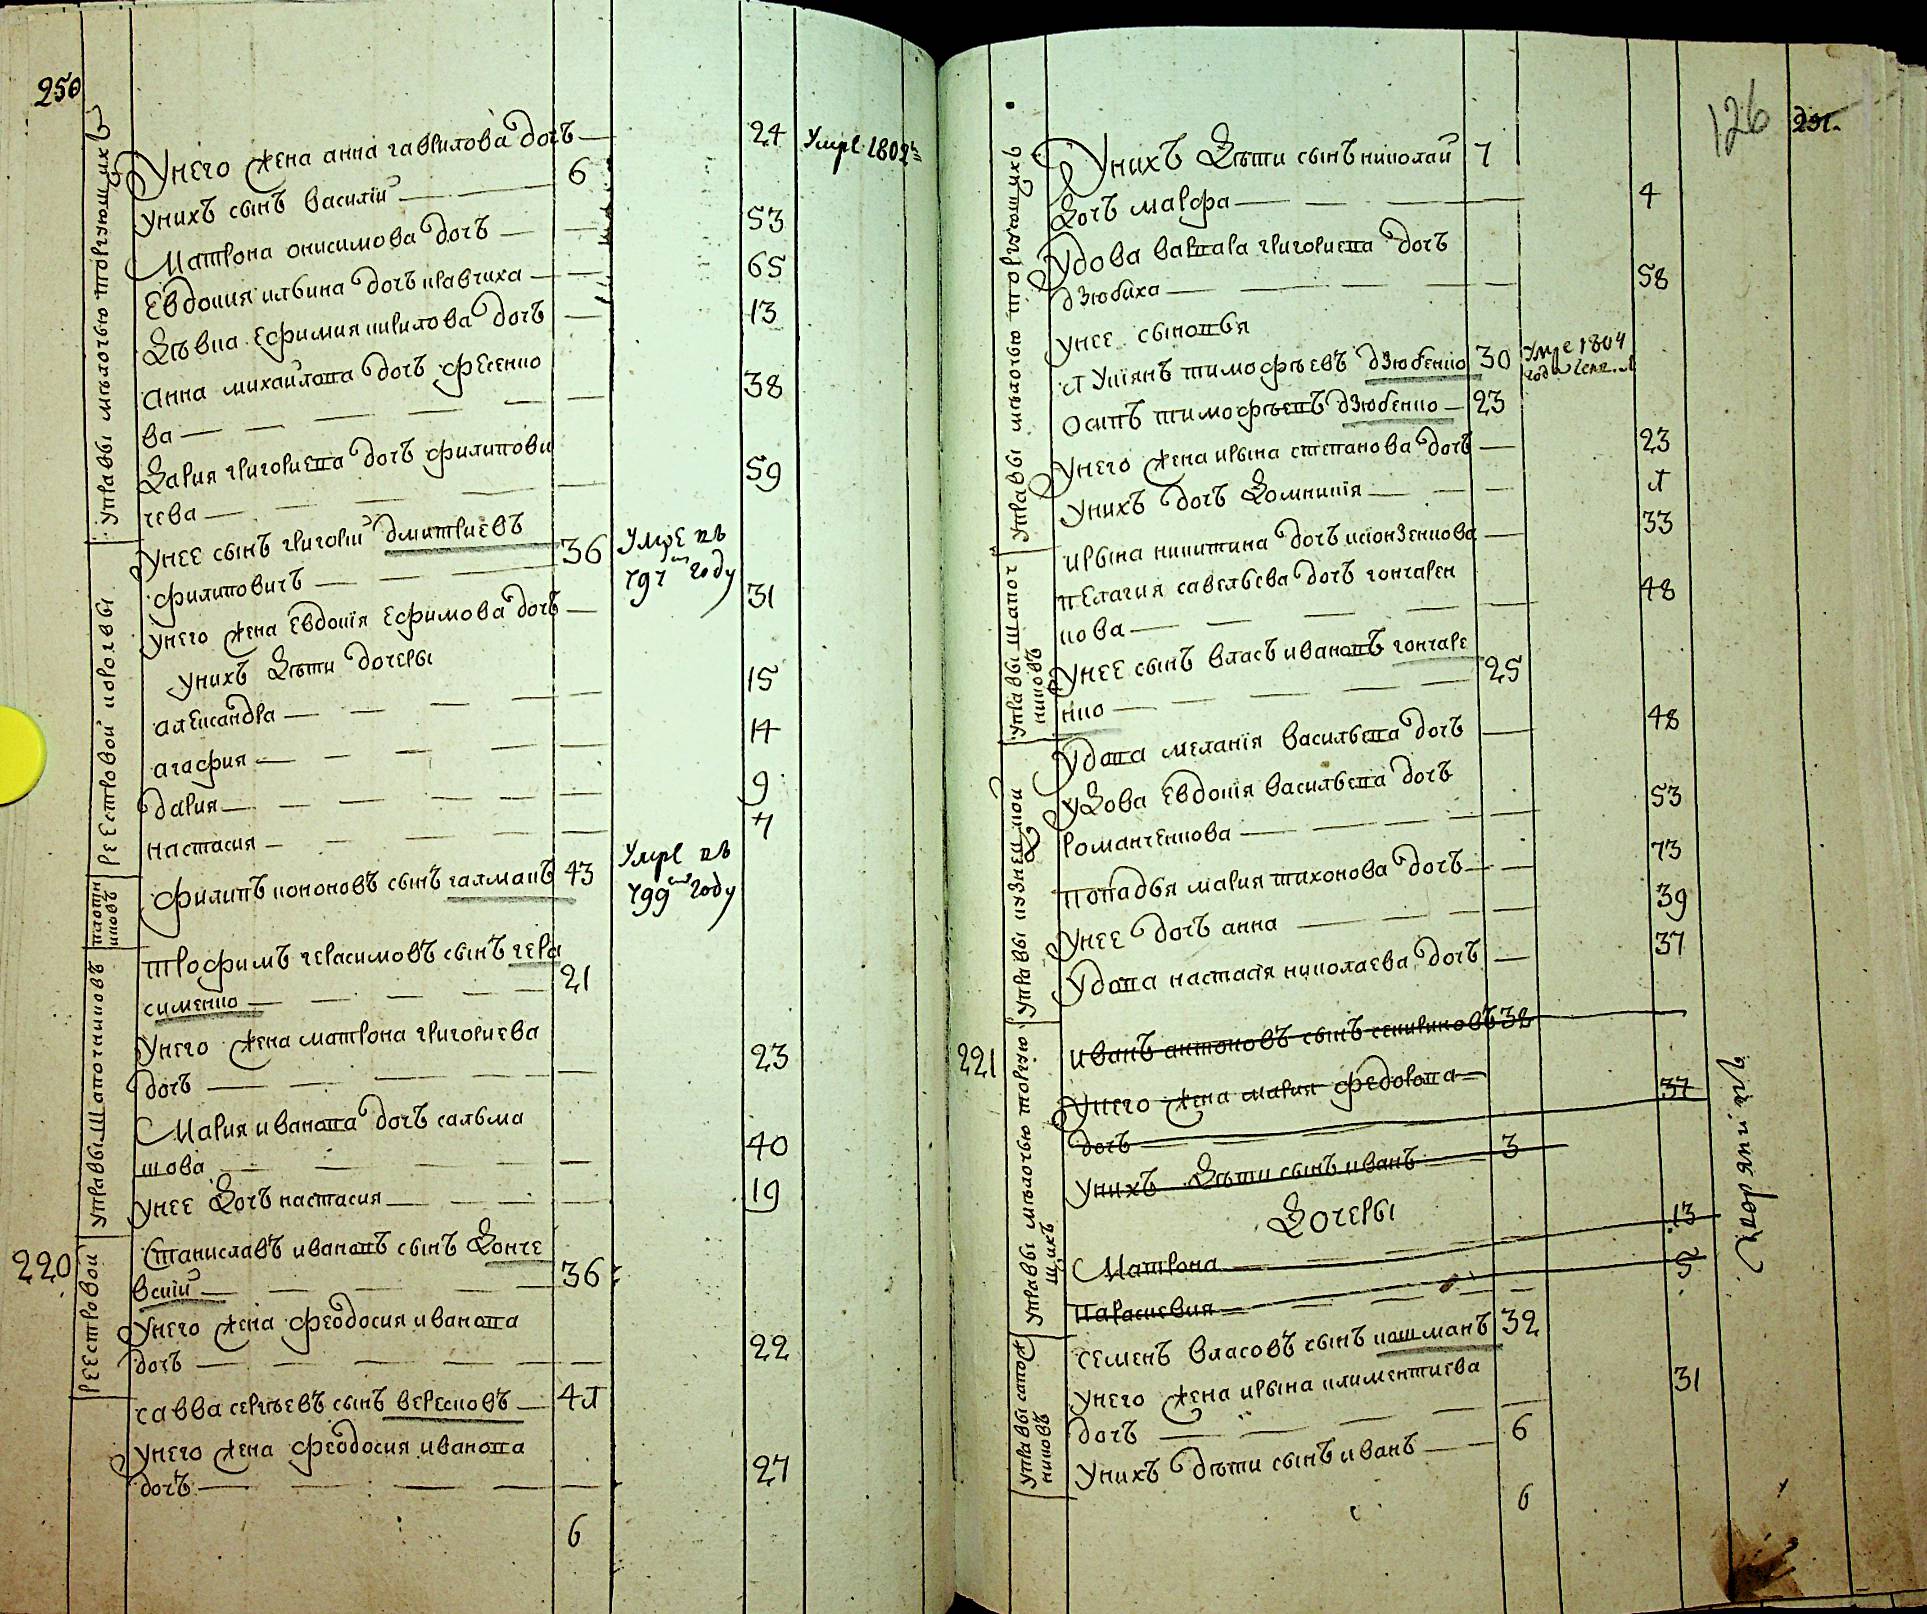 250
управы мѣлочью торгующихъ
У него жена анна гаврилова дочь 24 Умре 1802
6
у нихъ сынъ василій
Матрона онисимова дочь 53
Евдокия ильина дочь кравчиха 65
Дѣвка Ефимия кирилова дочь 13
анна михайлова дочь фесенко
ва 38
Дария григориева дочь филипови
чева 59
реестровой короговы
у нее сынъ григорій дмитриевъ
филиповичъ 36 Умре въ
797 году
у него жена Евдокія Ефимова дочь 31
у нихъ Дѣти дочеры
александра 15
агафия 14
дария 9
настасия 4
плотниковъ
филипъ кононовъ сынъ галманъ 43 Умре въ
799 году
управы шапочниковъ
трофимъ герасимовъ сынъ гера
сименко 21
у него жена матрона григориева
дочь 23
Мария иванова дочь сальма
шова 40
у нее Дочь настасия 19
220
реестровой
Станиславъ ивановъ сынъ Донче
вскій 36
у него жена феодосия иванова
дочь 22
савва сергѣевъ сынъ вересковъ 41
у него жена феодосия иванова
дочь 27
6
126 251.
управы мѣлочью торгующихъ
У нихъ Дѣти сынъ николай 7
Дочь марфа 4
Удова варвара григориева дочь
дзюбиха 58
у нее сыновья
лукіянъ тимофѣевъ дзюбенко 30 Умре 1804
осипъ тимофѣевъ дзюбенко 23
у него жена ирына степанова дочь 23
у нихъ дочь Домникія 1
управы шапочниковъ
ирына никитина дочь ксіонзенкова 33
пелагия савельева дочь гончарен
кова 48
у нее сынъ власъ ивановъ гончаре
нко 25
управы кузнецкой
Удова меланія васильева дочь 48
Удова Евдокія васильева дочь
романченкова 53
попадья мария тихонова дочь 73
у нее дочь анна 39
Удова настасія николаева дочь 37
221
управы мѣлочью торгующихъ
иванъ антоновъ сынъ секириновъ 38
у него жена мария федорова
дочь 37
у нихъ Дѣти сынъ иванъ 3
Дочеры
Матрона 13
параскевия 5
Дворянинъ
управы сапожниковъ
семенъ власовъ сынъ кошманъ 32
у него жена ирына климентиева
дочь 31
у нихъ дѣти сынъ иванъ 6
6